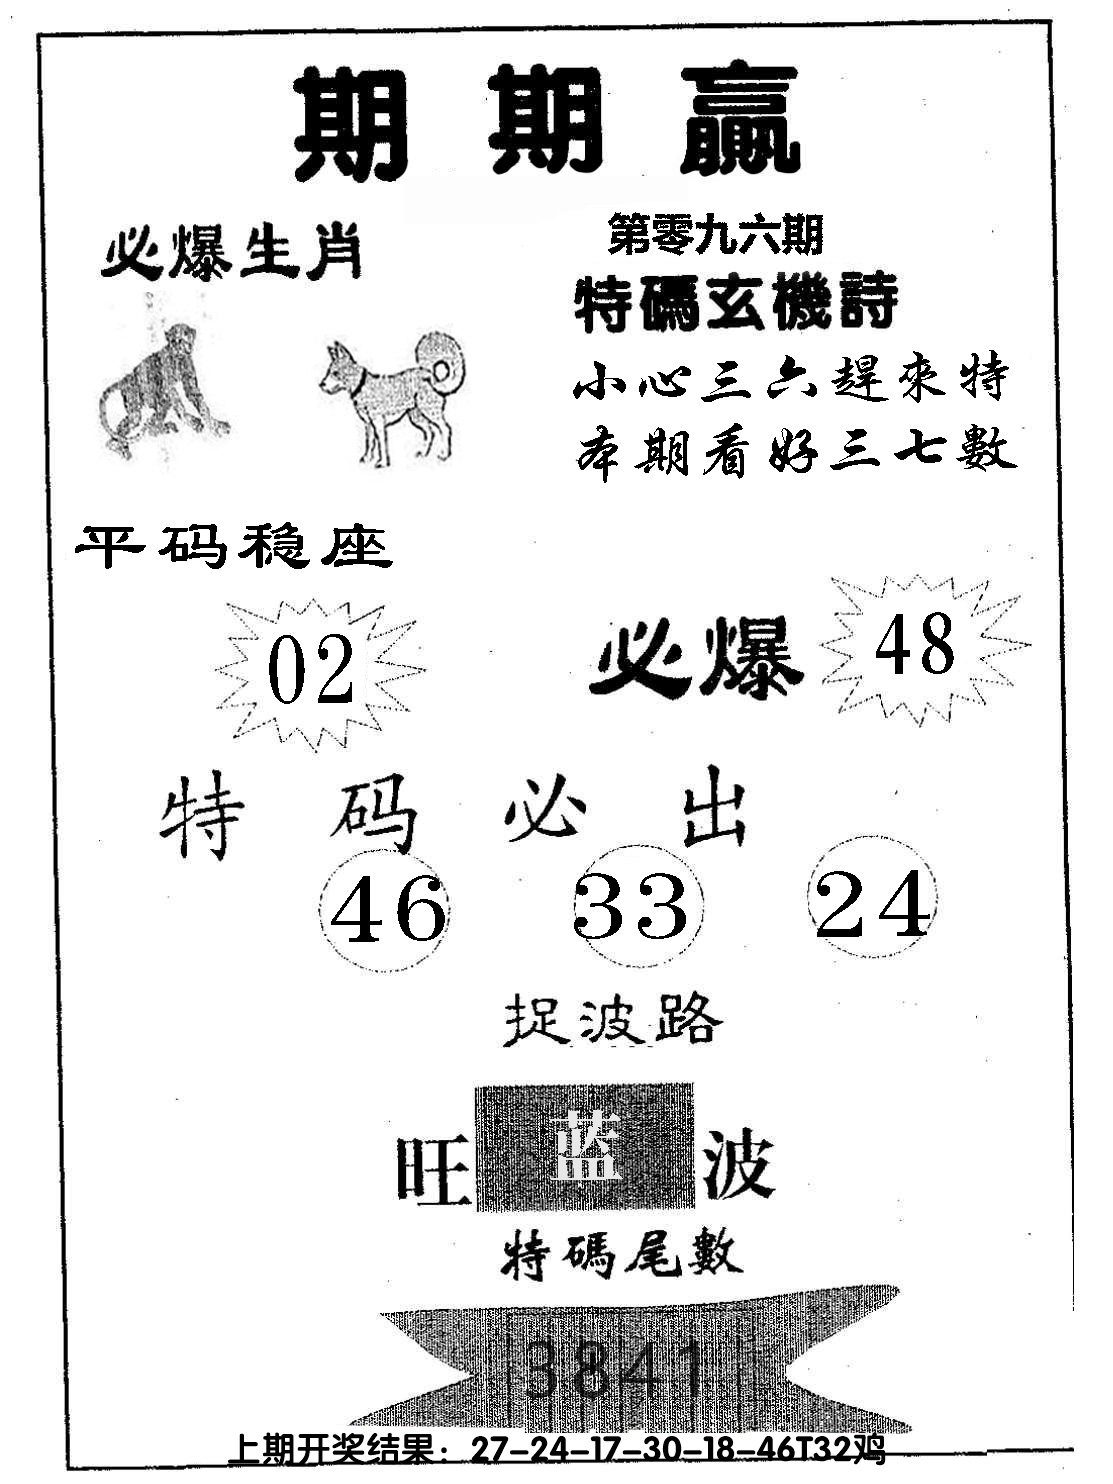 期期贏
必爆生肖
第零九六期
特碼玄機詩
小心三六趕來特
本期看好三七數
平码稳座
02
必爆
48
特码必出
46 33 24
捉波路
旺蓝波
特碼尾數
3841
上期开奖结果：27-24-17-30-18-46T32鸡